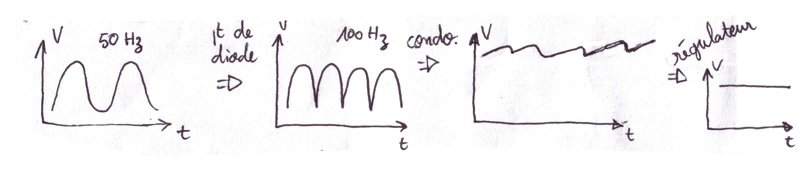 V
50 Hz
t
pt de
diode
⇒
V
100 Hz
t
condo.
⇒
V
t
régulateur
⇒
V
t